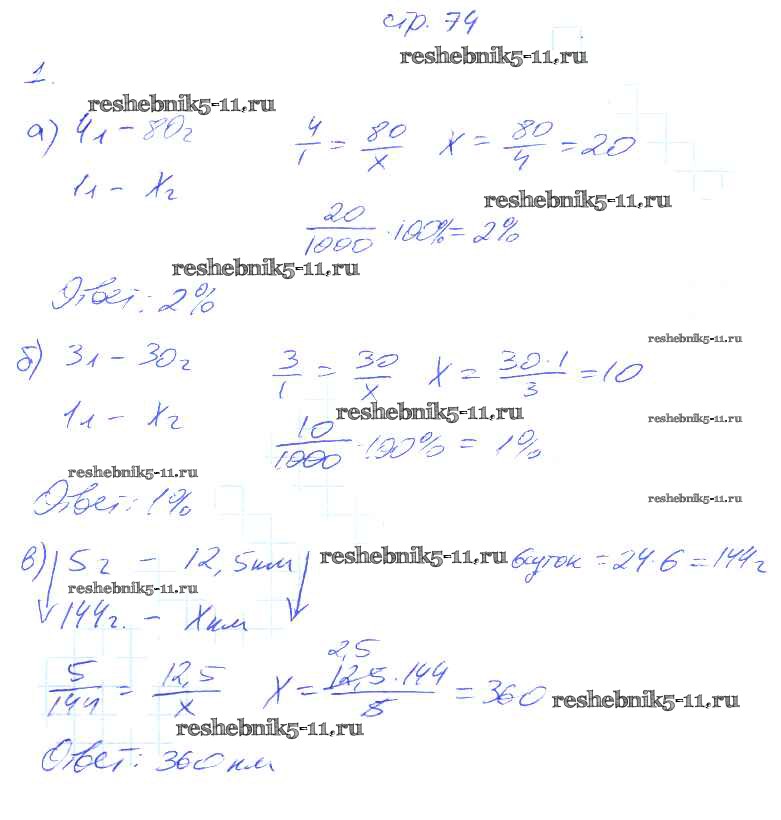 стр. 74
reshebnik5-11.ru
1.
reshebnik5-11.ru
а) 4л – 80г 4/1 = 80/x X = 80/4 = 20
1л – Xг
reshebnik5-11.ru
20/1000 · 100% = 2%
reshebnik5-11.ru
Ответ: 2%
reshebnik5-11.ru
б) 3л – 30г 3/1 = 30/x X = 30·1/3 = 10
1л – Xг
reshebnik5-11.ru
reshebnik5-11.ru
10/1000 · 100% = 1%
reshebnik5-11.ru
Ответ: 1%
reshebnik5-11.ru
в) 5г – 12,5км reshebnik5-11.ru 6суток = 24·6 = 144г
reshebnik5-11.ru
144г. – Xкм
2,5
5/144 = 12,5/x X = 12,5·144/5 = 360 reshebnik5-11.ru
reshebnik5-11.ru
Ответ: 360км